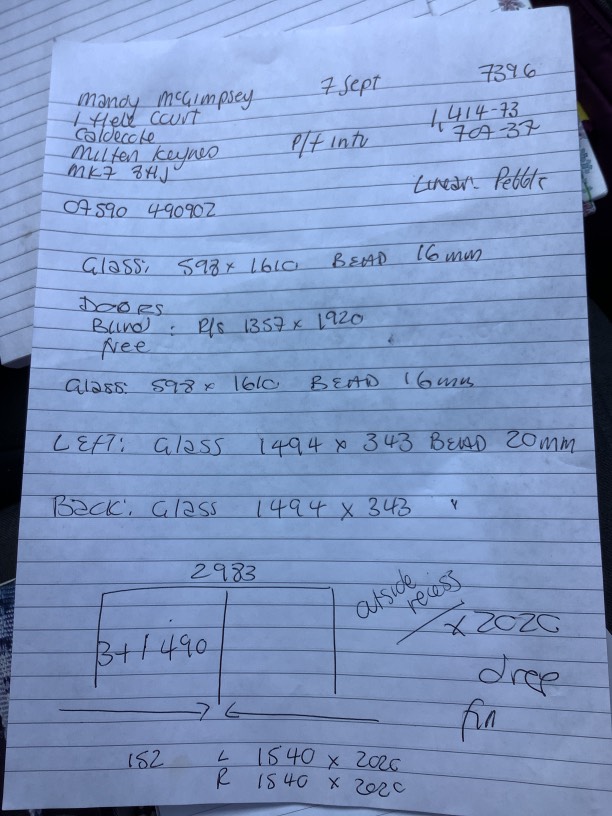 7 Sept
7396
Mandy McGimpsey
1 Field Court
Caldecote
Milton Keynes
MK7 8HJ
07590 490902
P/f Intu
1,414-73
707-37
Linear - Pebble
Glass: 598 x 1610 BEAD 16mm
DOORS
Blind : R/s 1357 x 1920
free
Glass: 598 x 1610 BEAD 16mm
LEFT: Glass 1494 x 343 BEAD 20mm
Back: Glass 1494 x 343 "
2983
3+1 490
outside recess
x 2020
drop
fin
152 L 1540 x 2020
R 1540 x 2020